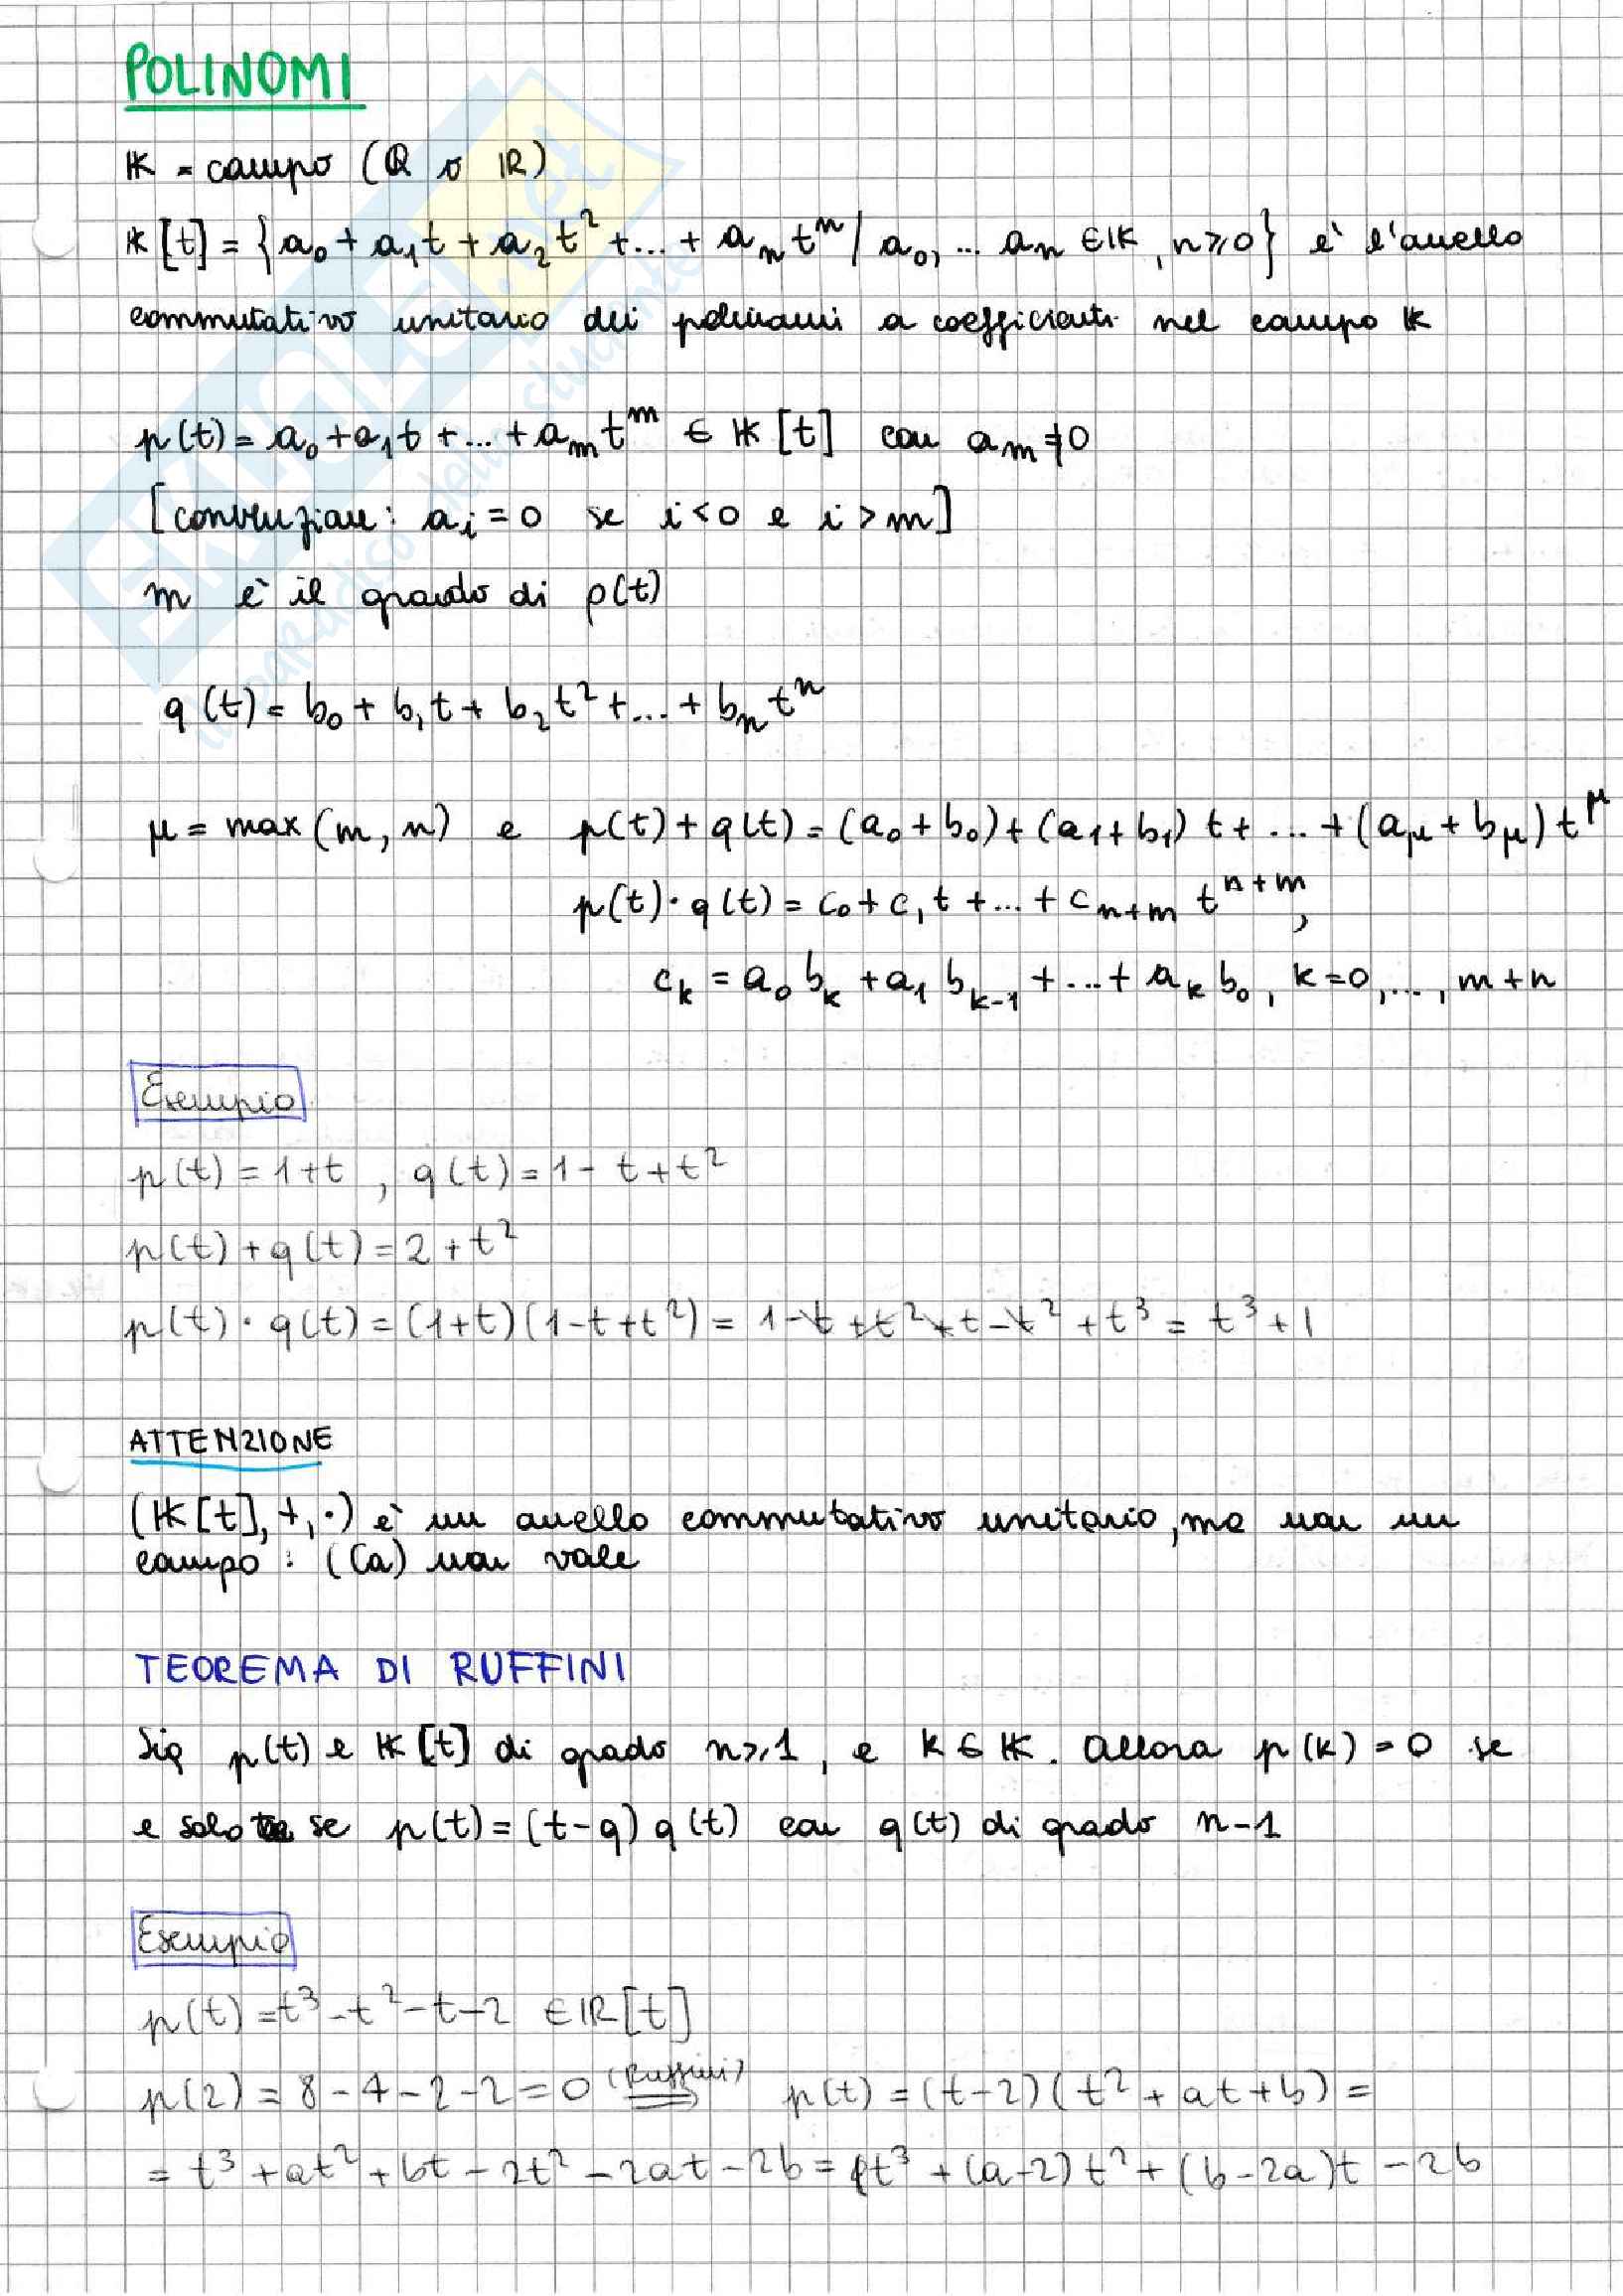 POLINOMI
𝕂 = campo (ℚ o ℝ)
𝕂[t] = {a₀ + a₁t + a₂t² + ... + aₙtⁿ / a₀, ... aₙ ∈ 𝕂, n ≥ 0} è l'anello
commutativo unitario dei polinomi a coefficienti nel campo 𝕂
p(t) = a₀ + a₁t + ... + aₘtᵐ ∈ 𝕂[t] con aₘ ≠ 0
[convenzione: aᵢ = 0 se i < 0 e i > m]
m è il grado di p(t)
q(t) = b₀ + b₁t + b₂t² + ... + bₙtⁿ
μ = max(m, n) e p(t) + q(t) = (a₀ + b₀) + (a₁ + b₁)t + ... + (a_μ + b_μ)t^μ
p(t)·q(t) = c₀ + c₁t + ... + cₙ₊ₘ tⁿ⁺ᵐ,
cₖ = a₀bₖ + a₁bₖ₋₁ + ... + aₖb₀, k = 0, ..., m+n
Esempio
p(t) = 1+t , q(t) = 1 - t + t²
p(t) + q(t) = 2 + t²
p(t)·q(t) = (1+t)(1-t+t²) = 1 - t + t² + t - t² + t³ = t³ + 1
ATTENZIONE
(𝕂[t], +, ·) è un anello commutativo unitario, ma non un
campo: ((a) non vale
TEOREMA DI RUFFINI
Sia p(t) e 𝕂[t] di grado n ≥ 1, e k ∈ 𝕂. Allora p(k) = 0 se
e solo se p(t) = (t-q) q(t) con q(t) di grado n-1
Esempio
p(t) = t³ - t² - t - 2 ∈ ℝ[t]
p(2) = 8 - 4 - 2 - 2 = 0 (Ruffini) ⟹ p(t) = (t-2)(t² + at + b) =
= t³ + at² + bt - 2t² - 2at - 2b = t³ + (a-2)t² + (b-2a)t - 2b